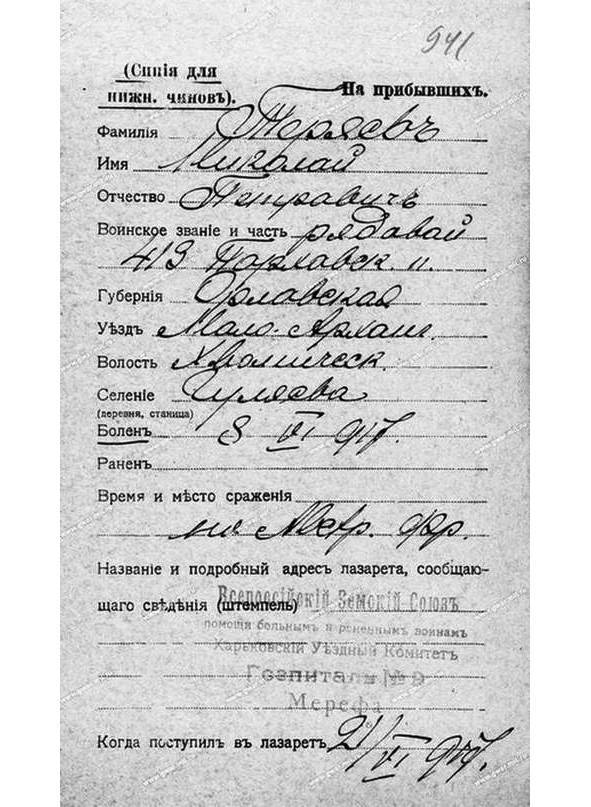 941
(Синія для
нижн. чиновъ).
На прибывшихъ.
Фамилія Теряевъ
Имя Миколай
Отчество Петравичъ
Воинское званіе и часть рядавой
413 Парлавск. п.
Губернія Орлавская
Уѣздъ Мало-Арханг.
Волость Хромическ.
Селеніе Гуляева
(деревня, станица)
Боленъ 8 VI 917.
Раненъ
Время и мѣсто сраженія
на
Названіе и подробный адресъ лазарета, сообщаю-
щаго свѣдѣнія (штемпель) Всероссійскій Земскій Союзъ
помощи больнымъ и раненнымъ воинамъ
Харьковскій Уѣздный Комитетъ
Госпиталь № 9
Мерефа
Когда поступил въ лазаретъ 21/VI 917.